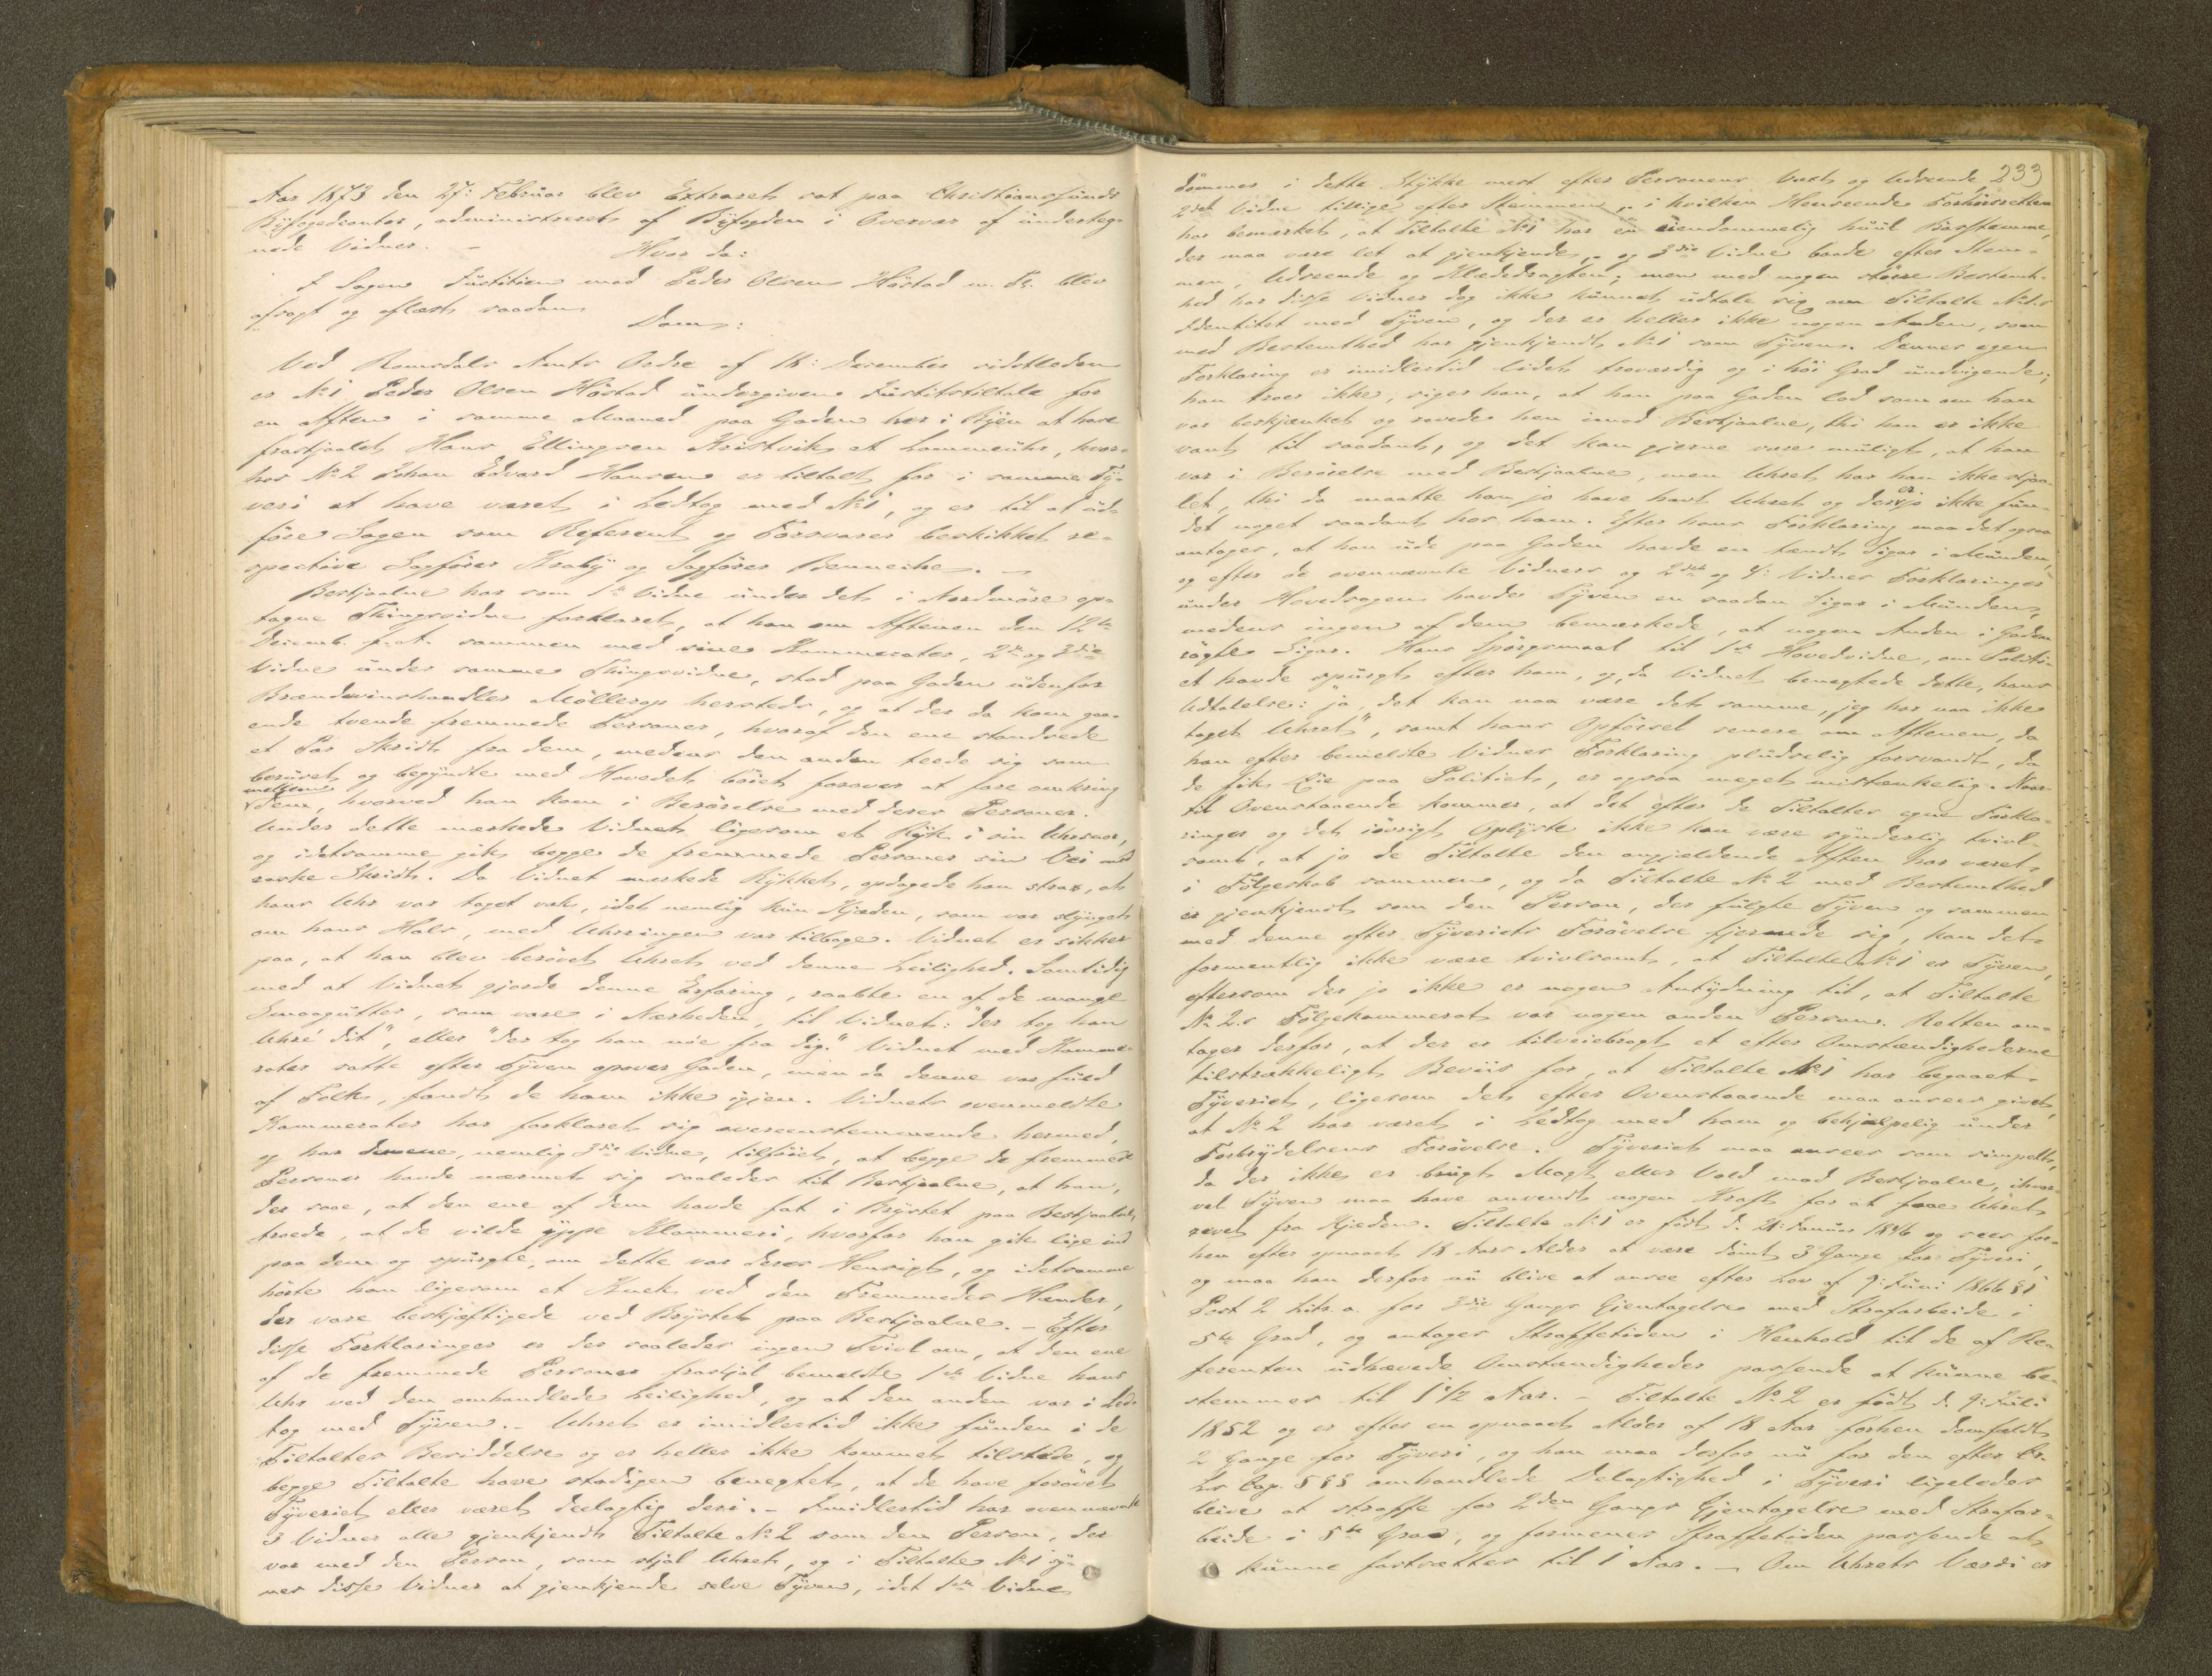 Aar 1873 den 27: Februar blev Extraret sat paa Christianssunds
Byfogedcontor, administreret af Byfogden i Overvær af underteg-
nede Vidner. – Hvor da:
I Sagen Justitien mod Peder Olsen Höstad m. Fl. blev
afsagt og oplæst saadan
Dom:
Ved Romsdals Amts Ordre af 18: December sidstleden
er No 1 Peder Olsen Höstad undergiven Justitstiltale for
en Aften i samme Maaned paa Gaden her i Byen at have
frastjaalet Hans Ellingsen Kristvik et Lommeuhr, hvor-
hos No 2 Johan Edvard Hansen er tiltalt for i samme Ty-
veri at have været i Ledtog med No 1, og er til at ud-
före Sagen som Referent og Forsvarer beskikket re-
spective Sagförer Kraby og Sagförer Benneche. –
Bestjaalne har som 1ste Vidne under det i Nordmöre op-
tagne Thingsvidne forklaret, at han om Aftenen den 12te
Decemb. f. A. sammen med sine Kammerater, 2det og 3die
Vidne under samme Thingsvidne, stod paa Gaden udenfor
Brændevinshandler Möllerop hersteds, og at der da kom gaa-
ende tvende fremmede Personer, hvoraf den ene standsede
et Par Skridt fra dem, medens den anden teede sig som
beruset og begyndte med Hovedet böiet forover at fare omkring
mellem
dem, hvorved han kom i Berörelse med deres Personer.
Under dette mærkede Vidnet ligesom et Ryk i sin Uhrsnor,
og idetsamme gik begge de fremmede Personer sin Vei med
raske Skridt. Da Vidnet mærkede Rykket, opdagede han strax, at
hans Uhr var taget væk, idet nemlig kun Kjæden, som var slynget
om hans Hals, med Uhrringen var tilbage. Vidnet er sikker
paa, at han blev berövet Uhret ved denne Leilighed. Samtidig
med at Vidnet gjorde denne Erfaring, raabte en af de mange
Smaagutter, som vare i Nærheden, til Vidnet: "der tog han
Uhre' dit", eller "der tog han noe fra dig." Vidnet med Kamme-
rater satte efter Tyven opover Gaden, men da denne var fuld
af Folk, fandt de ham ikke igjen. Vidnets ovenmeldte
Kammerater har forklaret sig overeenstemmende hermed,
og har denene, nemlig 3die Vidne, tilföiet, at begge de fremmede
Personer havde nærmet sig saaledes til Bestjaalne, at han,
der saae, at den ene af dem havde fat i Brystet paa Bestjaalne,
troede, at de vilde yppe Klammeri, hvorfor han gik lige ind
paa dem og spurgte, om dette var deres Hensigt, og idetsamme
hörte han ligesom et Knek ved den Fremmedes Hænder,
der vare beskjæftigede ved Brystet paa Bestjaalne. – Efter
disse Forklaringer er der saaledes ingen Tvivl om, at den ene
af de fremmede Personer frastjal bemeldte 1ste Vidne hans
Uhr ved den omhandlede Leilighed, og at den anden var i Led-
tog med Tyven. – Uhret er imidlertid ikke funden i de
Tiltaltes Besiddelse og er heller ikke kommet tilstede, og
begge Tiltalte have stadigen benegtet, at de have forövet
Tyveriet eller været deelagtig deri. – Imidlertid har ovennævnte
3 Vidner alle gjenkjendt Tiltalte No 2 som den Person, der
var med den Person, som stjal Uhret, og i Tiltalte No 1 sy-
nes disse Vidner at gjenkjende selve Tyven, idet 1ste Vidne
233
dömmer i dette Stykke mest efter Personens Vaxt og Udseende
2det Vidne tillige efter Stemmen, – i hvilken Henseende Forhörsretten
har bemærket, at Tiltalte No 1 har en eiendommelig huul Basstemme,
der maa være let at gjenkjende, – og 3die Vidne baade efter Stem-
men, Udseende og Klædedragten; men med nogen större Bestemt-
hed har disse Vidner dog ikke kunnet udtale sig om Tiltalte No 1.s
Identitet med Tyven, og der er heller ikke nogen Anden, som
med Bestemthed har gjenkjendt No 1 som Tyven. Dennes egen
Forklaring er imidlertid lidet troværdig og i höi Grad undvigende;
han troer ikke, siger han, at han paa Gaden lod som om han
var beskjænket og ravede hen imod Bestjaalne, thi han er ikke
vant til saadant, og det kan gjerne være muligt, at han
var i Berörelse med Bestjaalne, men Uhret har han ikke stjaa-
let, thi da maatte han jo have havt Uhret og der er jo ikke fun-
det noget saadant hos ham. Efter hans Forklaring maa det ogsaa
antages, at han ude paa Gaden havde en tændt Sigar i Munden,
og efter de ovennævnte Vidners og 2det og 4: Vidnes Forklaringer
under Hovedsagen havde Tyven en saadan Sigar i Munden,
medens ingen af dem bemærkede, at nogen Anden i Gaden
rögte Sigar. Hans Spörgsmaal til 1ste Hovedvidne, om Politi-
et havde spurgt efter ham, og, da Vidnet benegtede dette, hans
Udtalelse: "ja, det kan naa være det samme, jeg har naa ikke
taget Uhret", samt hans Opförsel senere om Aftenen, da
han efter bemeldte Vidnes Forklaring pludselig forsvandt, da
de fik Öie paa Politiet, er ogsaa meget mistænkelig. Naar
til Ovenstaaende kommer, at det efter de Tiltaltes egne Forkla-
ringer og det iövrigt Oplyste ikke kan være synderlig tvivl-
somt, at jo de Tiltalte den angjældende Aften har været
i Fölgeskab sammen, og da Tiltalte No 2 med Bestemthed
er gjenkjendt som den Person, der fulgte Tyven og sammen
med denne efter Tyveriets Forövelse fjernede sig, kan det
formentlig ikke være tvivlsomt, at Tiltalte No 1 er Tyven,
eftersom der jo ikke er nogen Antydning til, at Tiltalte
No 2.s Fölgekammerat var nogen anden Person. Retten an-
tager derfor, at der er tilveiebragt et efter Omstændighederne
tilstrækkeligt Beviis for, at Tiltalte No 1 har begaaet
Tyveriet, ligesom det efter Ovenstaaende maa ansees givet,
at No 2 har været i Ledtog med ham og behjælpelig under
Forbrydelsens Forövelse. Tyveriet maa ansees som simpelt,
da der ikke er brugt Magt eller Vold mod Bestjaalne, ihvor-
vel Tyven maa have anvendt nogen Kraft for at faae Uhret
revet fra Kjæden. Tiltalte No 1 er födt d. 21: Januar 1846 og sees for-
hen efter opnaaet 18 Aars Alder at være dömt 3 Gange for Tyveri,
og maa han derfor nu blive at ansee efter Lov af 9: Juni 1866 § 1
Post 2 Litr. a. for 3die Gangs Gjentagelse med Strafarbeide i
5te Grad, og antages Straffetiden i Henhold til de af Re-
ferenten udhævede Omstændigheder passende at kunne be-
stemmes til 1 1/2 Aar. – Tiltalte No 2 er födt d. 9: Juli
1852 og er efter en opnaaet Alder af 18 Aar forhen domfældt
2 Gange for Tyveri, og han maa derfor nu for den efter Cr.
Lv. Cap. 5 § 8 omhandlede Delagtighed i Tyveri ligeledes
blive at straffe for 2den Gangs Gjentagelse med Strafar-
beide i 5te Grad, og formenes Straffetiden passende at
kunne fastsættes til 1 Aar. – Om Uhrets Værdi er